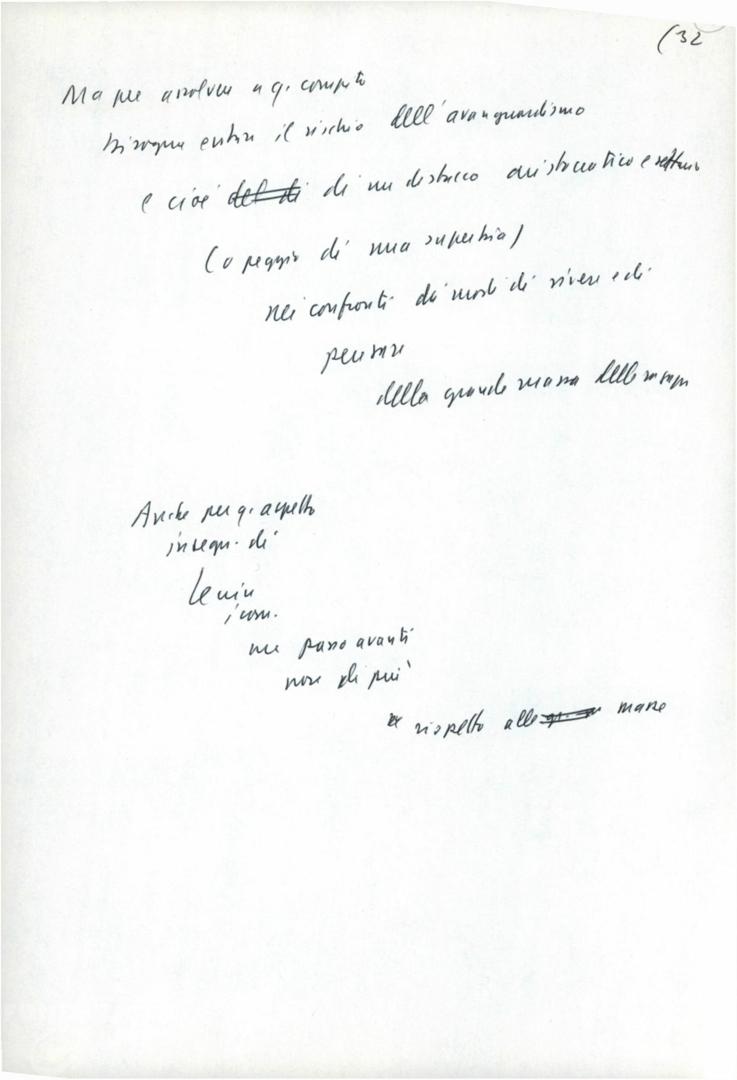 (32
Ma per assolvere a q. compito
bisogna evitare il rischio dell'avanguardismo
e cioè del di di un distacco aristocratico e settario
(o peggio di una superbia)
nei confronti dei modi di vivere e di
pensare
della grande massa delle
Anche per q. aspetto
insegn. di
Lenin
un passo avanti
non di più
rispetto alle masse